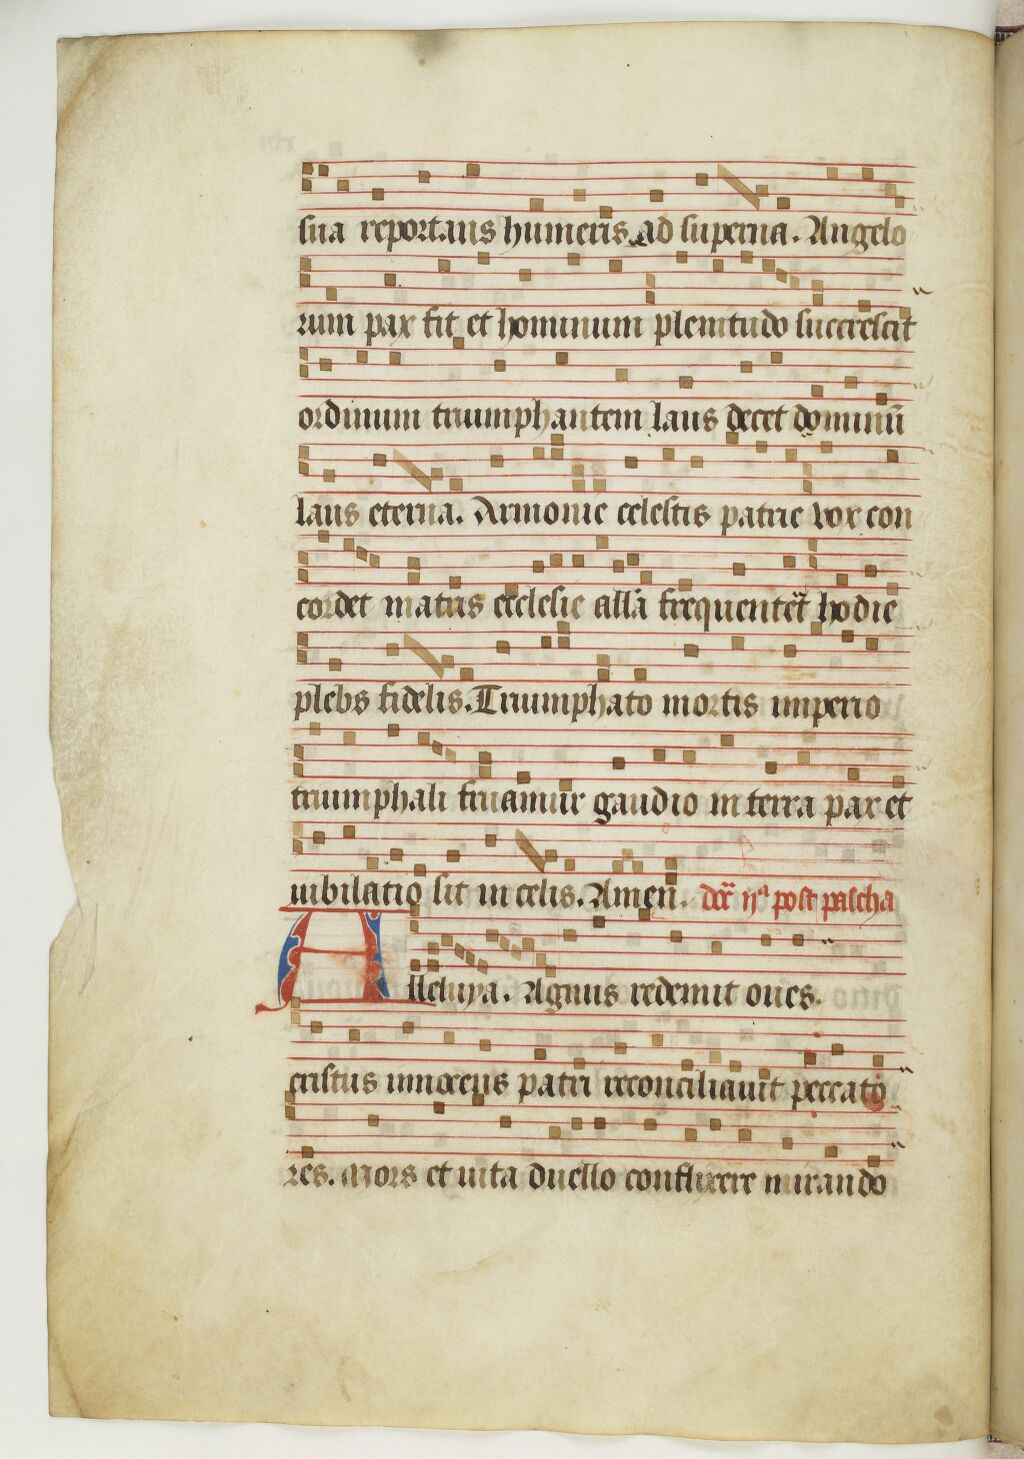 sua reportans humeris ad superna. Angelo
rum pax fit et hominum plenitudo succrescit
ordinum triumphantem laus decet dominū
laus eterna. Armonie celestis patrie vox con
cordet matris ecclesie allā frequentet hodie
plebs fidelis. Triumphato mortis imperio
triumphali fruamur gaudio in terra pax et
iubilatio sit in celis. Amen. post pascha
Alleluya. Agnus redemit oues.
cristus innocens patri reconciliauit peccato
res. Mors et uita duello conflixere mirando